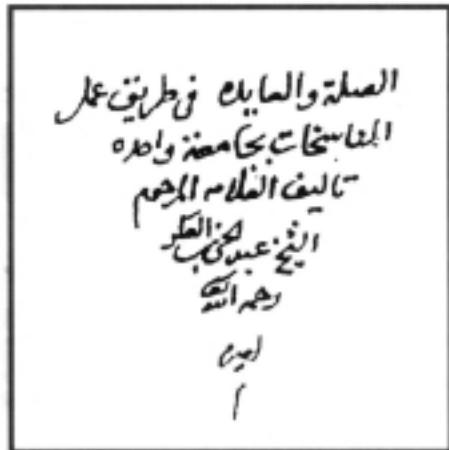 الصلة والعايده في طريق عمل
المناسخات بجامعة واحده
تاليف العلامه المرحوم
الشيخ عبد
رحمه الله
امين